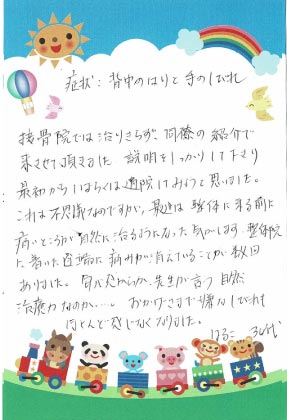 症状：背中のはりと手のしびれ
接骨院では治りきらず、同僚の紹介で
来させて頂きました。説明をしっかりして下さり
最初からしばらくは通院してみようと思いました。
これは不思議なのですが、最近は整体に来る前に
痛いところが自然に治るようになった気がします。整体院
に着いた途端に痛みが消えていることが数回
ありました。気のせいか、先生が言う自然
治癒力なのか…。おかげさまで背中のしびれも
ほとんど感じなくなりました。
30代